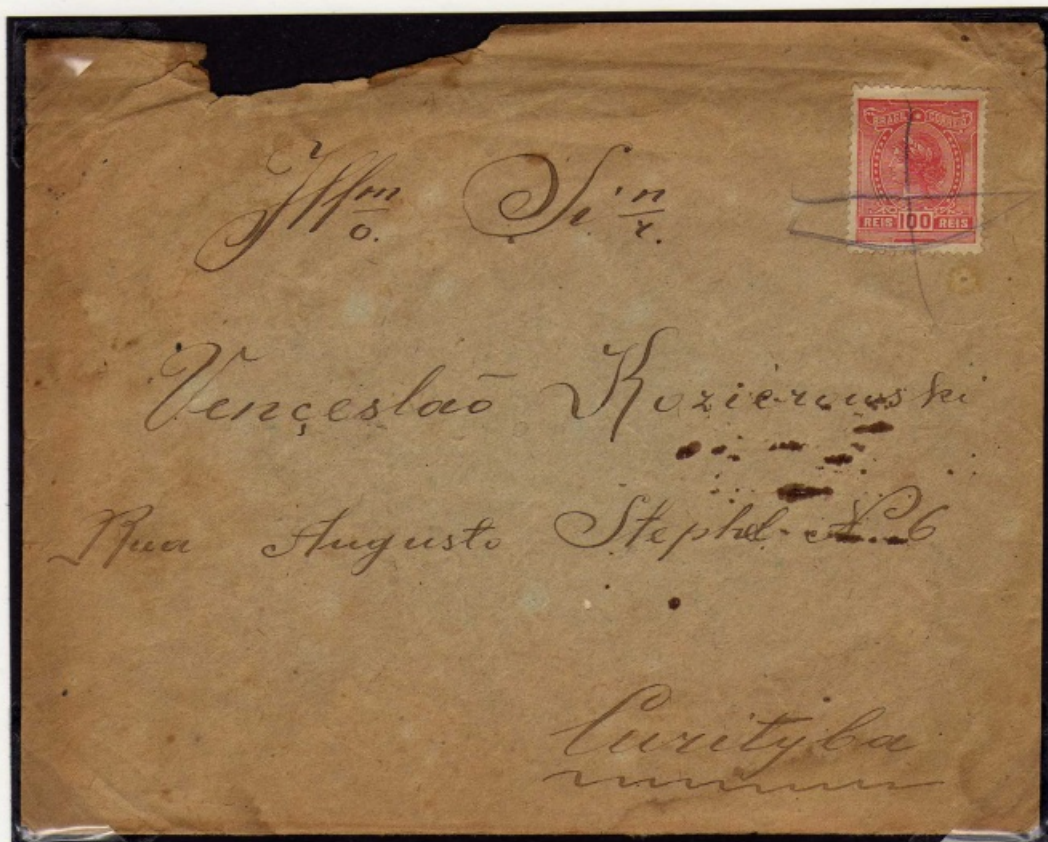 BRASIL CORREIO
REIS 100 REIS
Illm o. Si. n r.
Vençeslaõ Koziérowski
Rua Augusto N. 6
Curityba